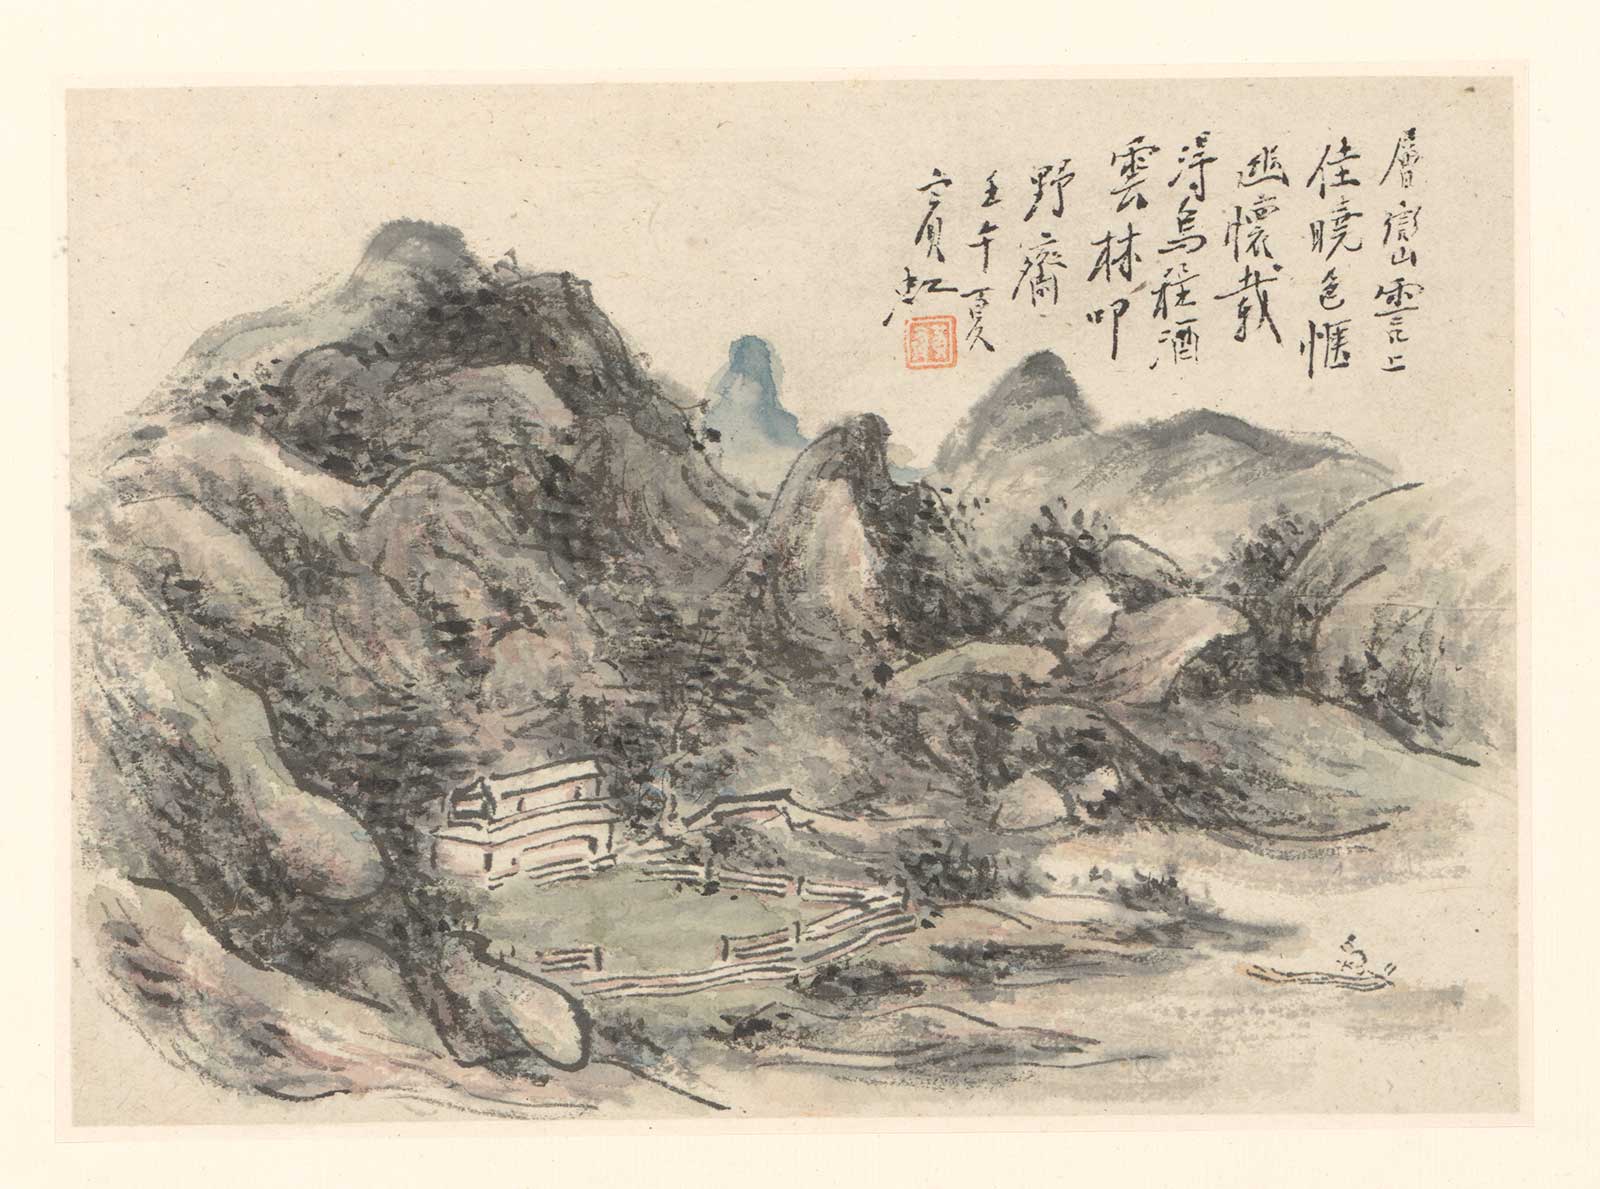 層巒雲上
佳曉色愜
幽懷載
得烏程酒
雲林叩
野齋
壬午夏
賓虹